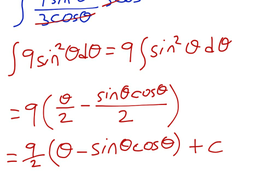 ∫ 9sin θ 3cosθ / 3cosθ
∫9sin²θdθ = 9∫sin²θdθ
= 9(θ/2 − sinθcosθ/2)
= 9/2(θ − sinθcosθ) + c